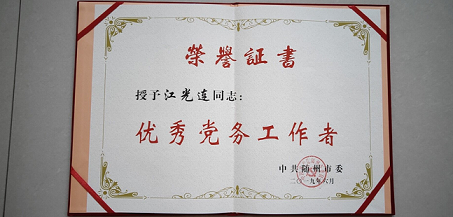 荣誉証書
授予江光连同志：
优秀党务工作者
中共随州市委
二〇一九年六月